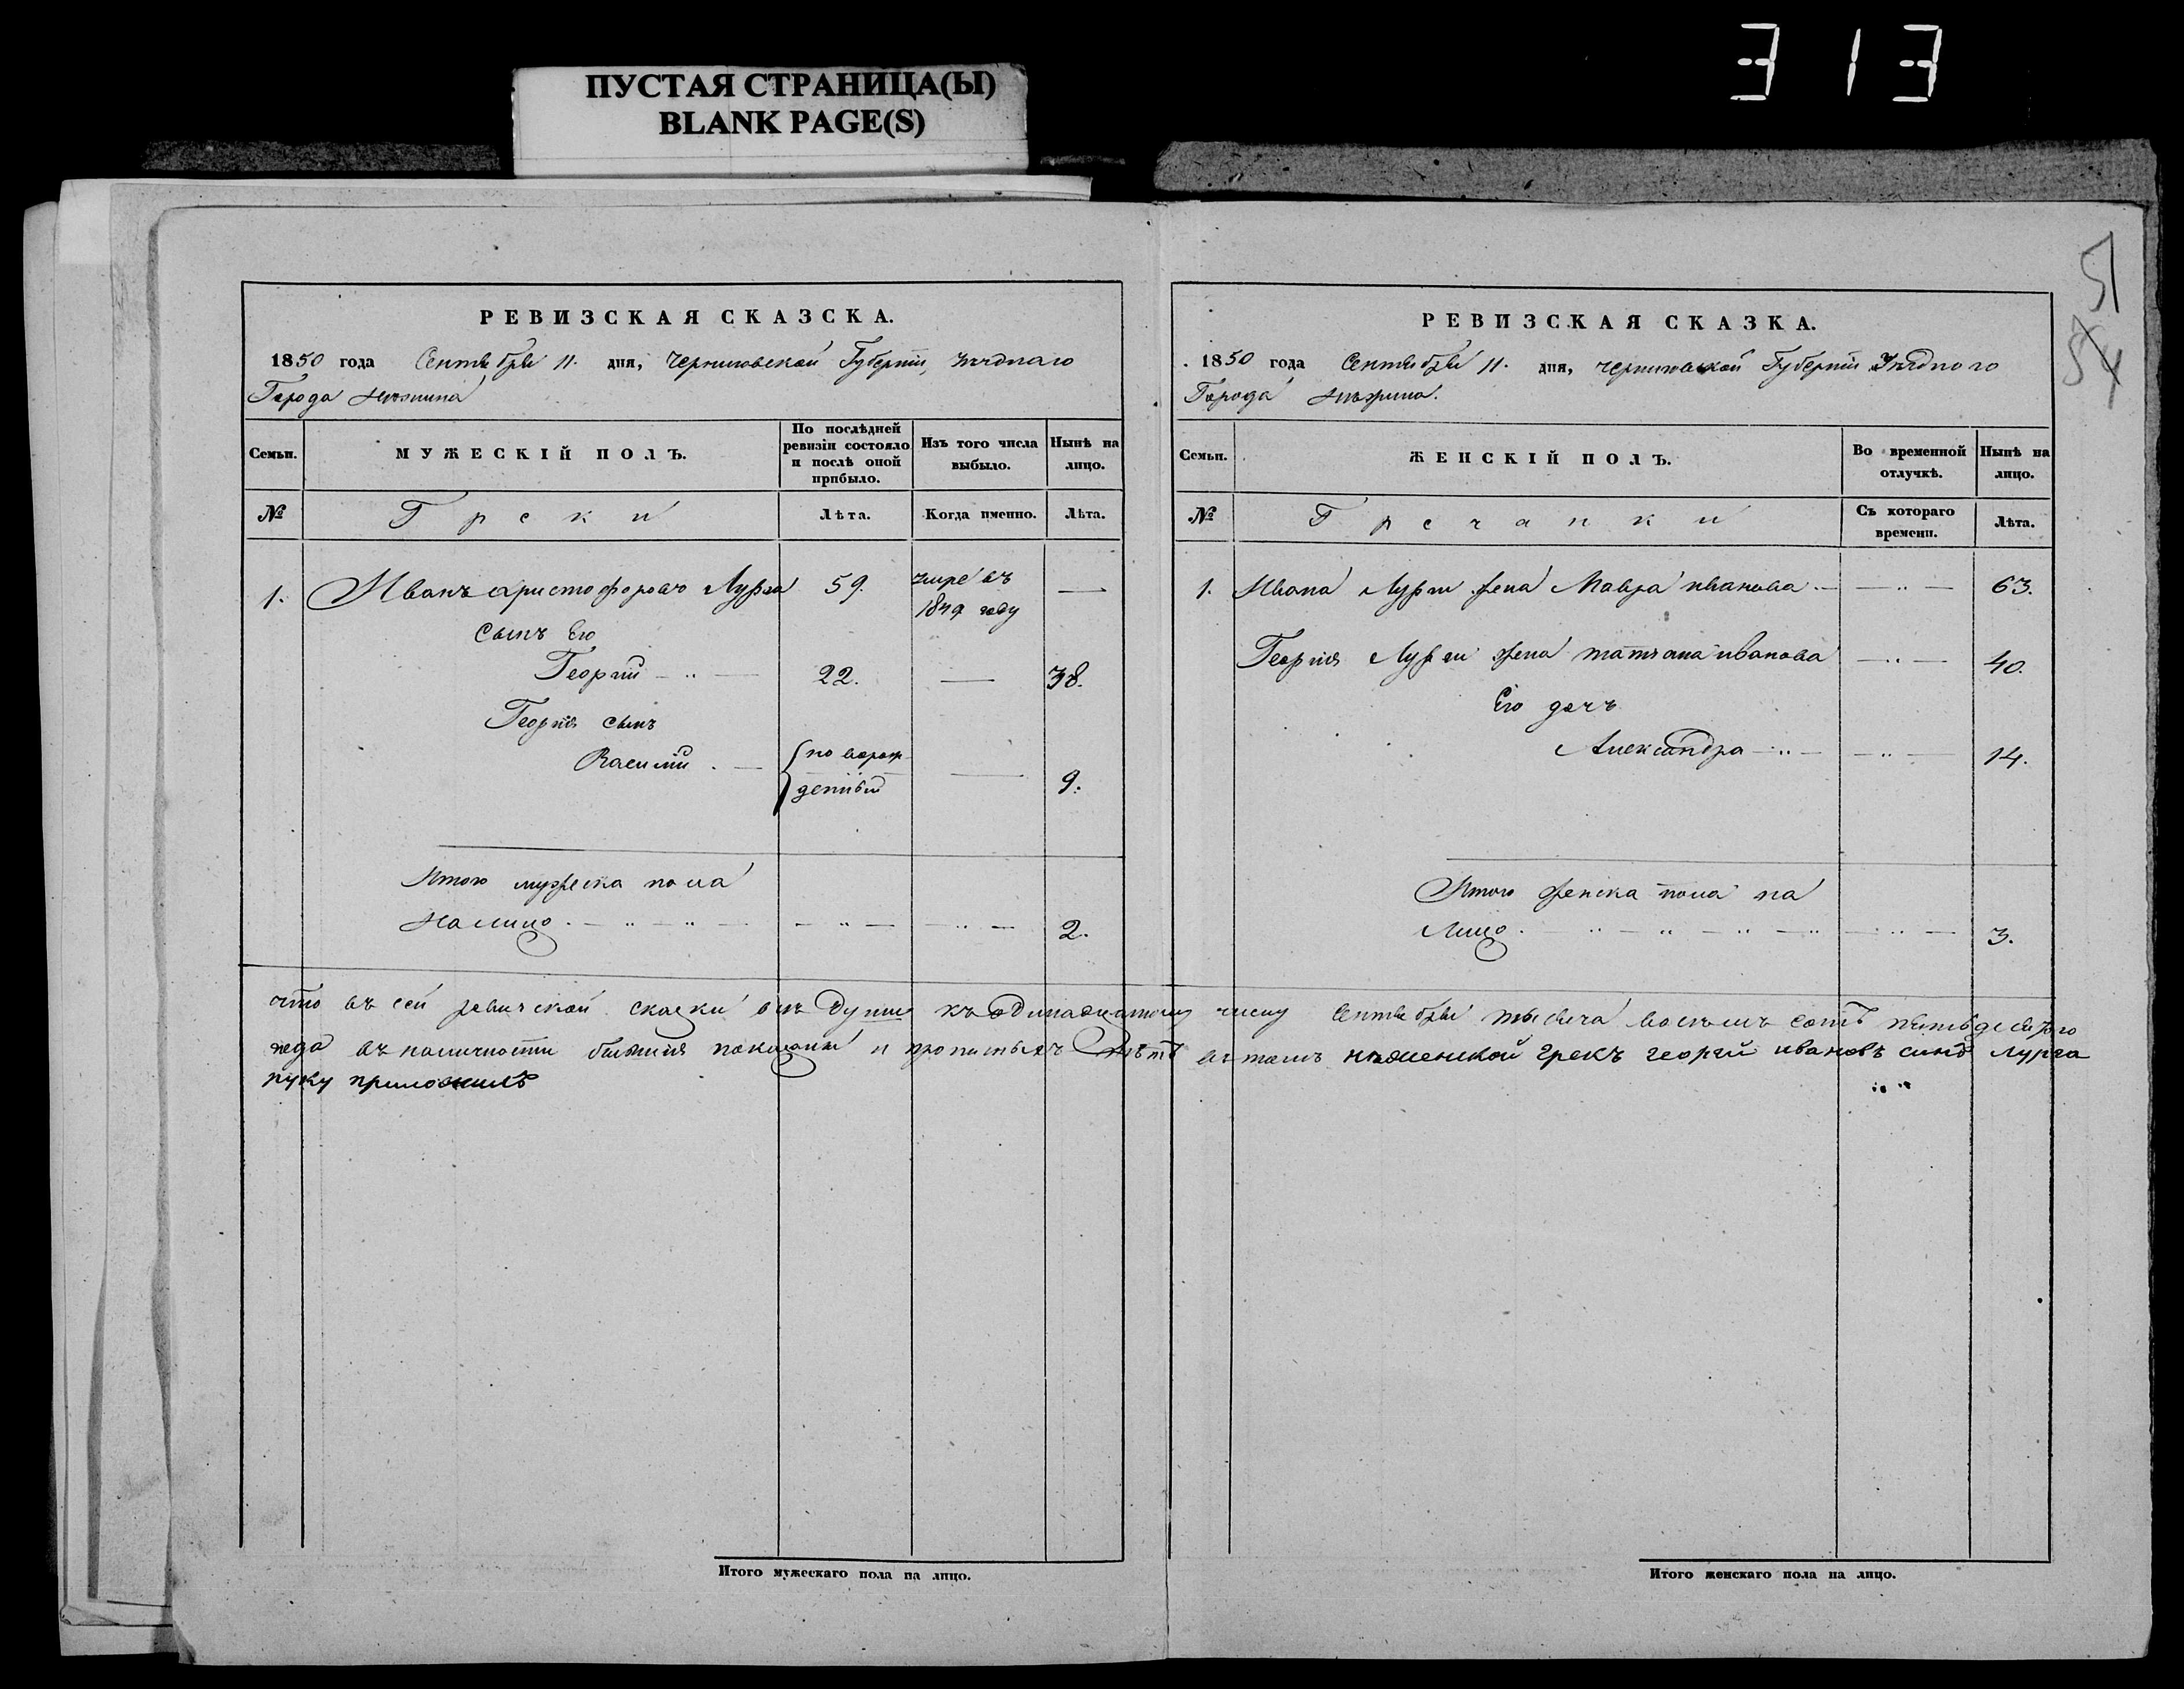 ПУСТАЯ СТРАНИЦА(Ы)
BLANK PAGE(S)
313
51
54
РЕВИЗСКАЯ СКАЗСКА.
1850 года Сентября 11. дня, Черниговской Губернии, уѣзднаго
Города Нѣжина
Семьи.
МУЖЕСКІЙ ПОЛЪ.
По послѣдней ревизіи состояло и послѣ оной прибыло.
Изъ того числа выбыло.
Нынѣ на лицо.
№
Греки
Лѣта.
Когда именно.
Лѣта.
1. Иванъ Христофоровъ Лурга 59. умре въ 1849 году —
Сынъ Его
Георгій — „ — 22. — 38.
Георгія сынъ
Василій . — новорожденный — 9.
Итого мужеска пола
Налицо . — „ — „ — — „ — — „ — 2.
РЕВИЗСКАЯ СКАЗКА.
1850 года Сентября 11. дня, Черниговской Губерніи Уѣздного
Города Нѣжина.
Семьи.
ЖЕНСКІЙ ПОЛЪ.
Во временной отлучкѣ.
Нынѣ на лицо.
№
Гречанки
Съ котораго времени.
Лѣта.
1. Ивана Лурги жена Мавра иванова — — „ — 63.
Георгія Лурги жена татьяна иванова — „ — 40.
Его дочь
Александра — „ — — „ — 14.
Итого женска пола на
Лицо . — „ — „ — „ — „ — „ — 3.
что въ сей ревизской скаски всѣ души къ одинадцатому числу Сентября тысяча восемь сотъ пятьдесятого
года въ наличности бывшия показани и прописныхъ нѣтъ въ томъ нѣженской грекъ георгій ивановъ синъ лурга
руку приложилъ
Итого мужескаго пола на лицо.
Итого женскаго пола на лицо.